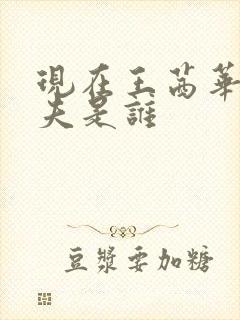 現在王芮華
夫是誰
豆漿要加糖